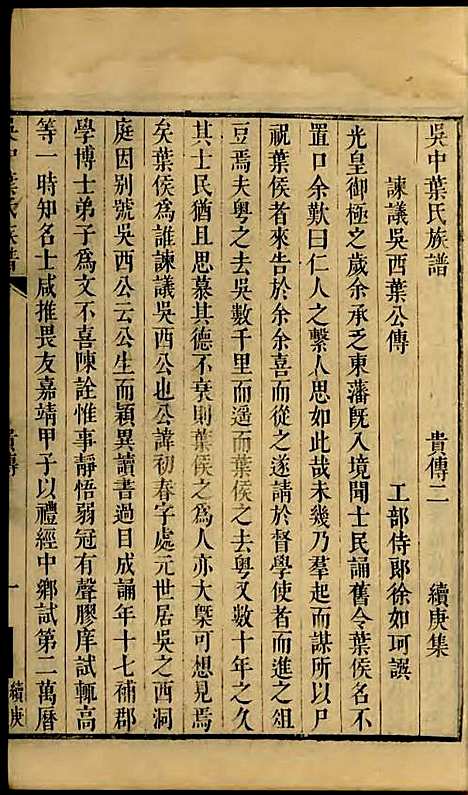 吳中葉氏族譜　貴傳二　續庚集
諫議吳西葉公傳　工部侍郎徐如珂譔
光皇御極之歲余承乏東藩旣入境聞士民誦舊令葉侯名不
置口余歎曰仁人之繫人思如此哉未幾乃羣起而謀所以尸
祝葉侯者來告於余余喜而從之遂請於督學使者而進之俎
豆焉夫粵之去吳數千里而遥而葉侯之去粵又數十年之久
其士民猶且思慕其德不衰則葉侯之為人亦大槩可想見焉
矣葉侯為誰諫議吳西公也公諱初春字處元世居吳之西洞
庭因别號吳西公云公生而穎異讀書過目成誦年十七補郡
學博士弟子為文不喜陳詮惟事靜悟弱冠有聲膠庠試輒高
等一時知名士咸推畏友嘉靖甲子以禮經中鄉試第二萬曆
吳中葉氏族譜　貴傳　一　續庚